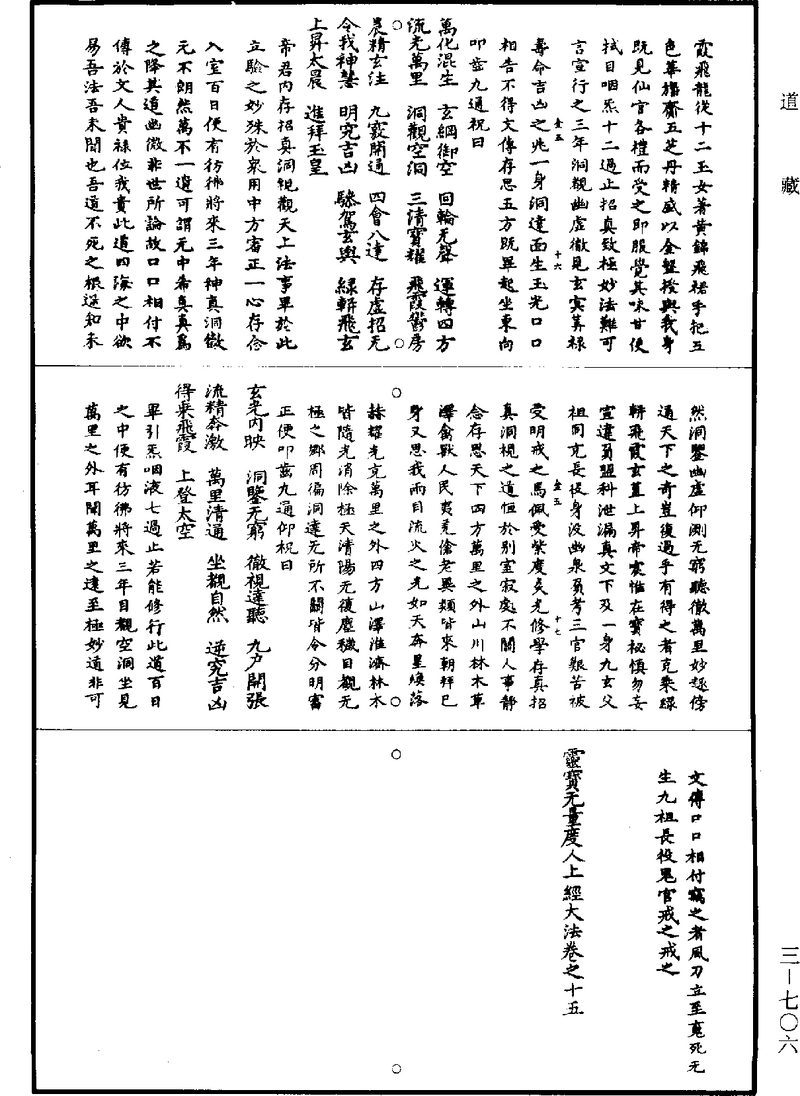 道藏
霞飛龍從十二玉女著黃錦飛裙手把五
色華旛齎五芝丹精盛以金盤授與我身
既見仙官各禮而受之即服覺其味甘便
拭目咽炁十二過止招真致極妙法難可
言宣行之三年洞觀幽虛徹見玄冥筭祿
壽命吉凶之兆一身洞達面生玉光口口
相告不得文傳存思五方既畢起坐東向
叩齒九通祝曰
萬化混生 玄綱御空 回輪无聲 運轉四方
流光萬里 洞觀空洞 三清寶耀 飛霞鬱房
晨精玄注 九竅開通 四會八達 存虛招无
令我神慧 明究吉凶 驂駕玄輿 綠軿飛玄
上昇太晨 進拜玉皇
帝君内存招真洞視觀天上法事畢於此
立驗之妙殊於衆用中方審正一心存念
入室百日便有彷彿將來三年神真洞徹
元不朗然萬不一遺可謂无中希真真為
之降其道幽微非世所論故口口相付不
傳於文人貴祿位我貴此道四海之中欲
易吾法吾未聞也吾道不死之根遥和未
然洞鑒幽虛仰測无窮聽徹萬里妙趣傍
通天下之奇豈復過乎有得之者克乘綠
軿飛霞玄蓋上昇帝宸惟在寶祕慎勿妄
宣違慢盟科泄漏真文下及一身九玄父
祖同充長役身没幽泉負考三官艱苦被
受明戒之焉佩受紫度炎光修學存真招
真洞視之道恒於别室寂處不關人事靜
念存思天下四方萬里之外山川林木草
澤禽獸人民夷羌傖老異類皆來朝拜已
身又思我兩目流火之光如天奔星煥落
赫耀光克萬里之外四方山澤淮濟林木
皆隨光消除極天清陽无復塵穢目觀无
極之鄉周徧洞達无所不關皆令分明審
正便叩齒九通仰祝曰
玄光内映 洞鑒无窮 徹視達聽 九户開張
流精奔激 萬里清通 坐觀自然 逆究吉凶
得乘飛霞 上登太空
畢引炁咽液七過止若能修行此道百日
之中便有彷彿將來三年目觀空洞坐見
萬里之外耳聞萬里之遠至極妙道非可
文傳口口相付竊之者風刀立至寃死无
生九祖長役鬼官戒之戒之
靈寶无量度人上經大法卷之十五
金五
十六
金五
十七
三一七〇六